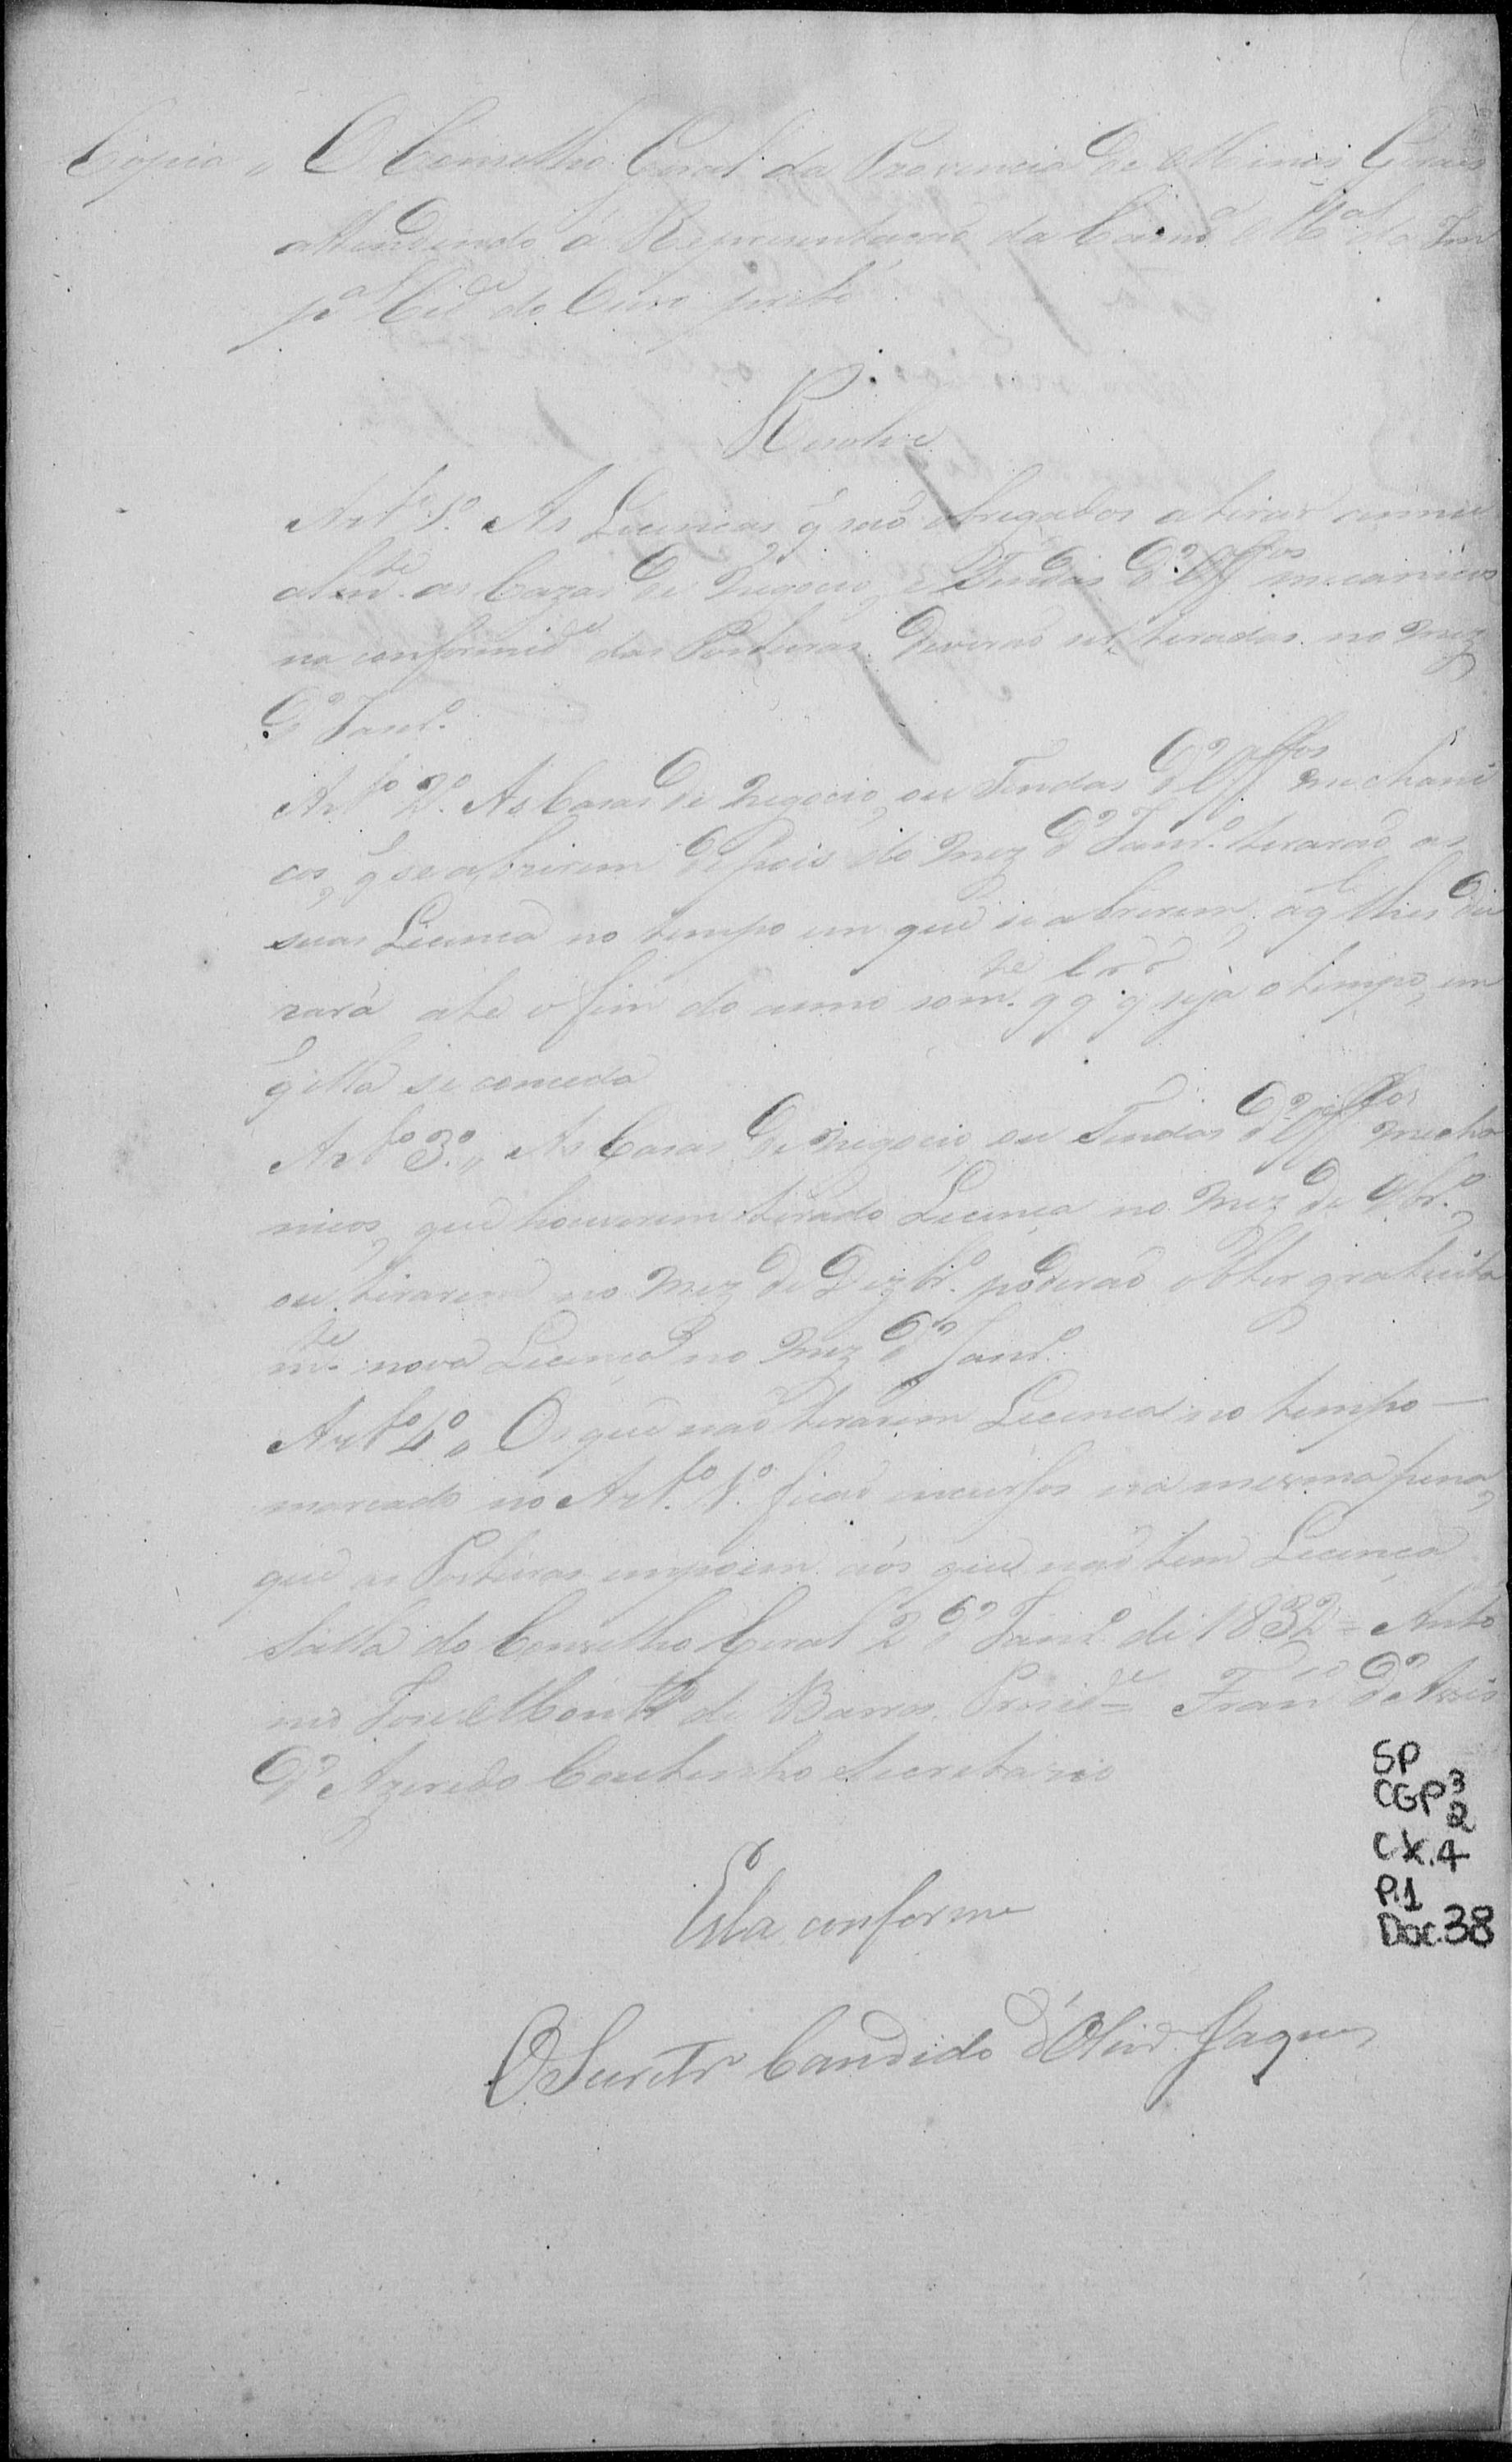 Copia „ O Conselho Geral da Provincia de Minas Geraes
attendendo á Representacaõ da Camª Mal da Im
pal Cide do Ouro preto
Resolve
Artº 1º. As Licencas q̃ saõ obrigados a tirar annu
almte. as Cazas de Negocio, e Tendas d'Offos mecanicos
na conformide das Posturas, deveraõ ser tiradas no mez
d' Janrº.
Artº 2º. As Casas de Negocio, ou Tendas d'Offos mechani
cos, q̃ se abrirem depois do mez d' Janrº. tiraraõ as
suas Licenca no tempo em que se abrirem, a qͥ lhes du
rará até o fim do anno somte. qlqr q̃ seja o tempo, em
q̃ ella se conceda
Artº 3º. „ As Casas de Negocio, ou Tendas d'Offos mecha
nicos, que houverem tirado Licença no mez de 9brº.,
ou tirarem no mez de Dezbrº. poderaõ obter gratuita
mte. nova Licença no mez d' Janrº.
Artº 4º „ Os que naõ tirarem Licenca no tempo —
marcado no Artº. 1º. ficaõ incursos na mesma pena,
que as Posturas impoem aos que naõ tem Licença
Salla do Conselho Geral 2 d' Janrº de 1832 = Anto
nio José Montrº de Barros Preside = Franco d' Assis
d' Azeredo Coutinho Secretario
SP
CGP 3
2
CX.4
P.1
Doc.38
Esta conforme
O Secretrº Candido d'Olivrª Jaques